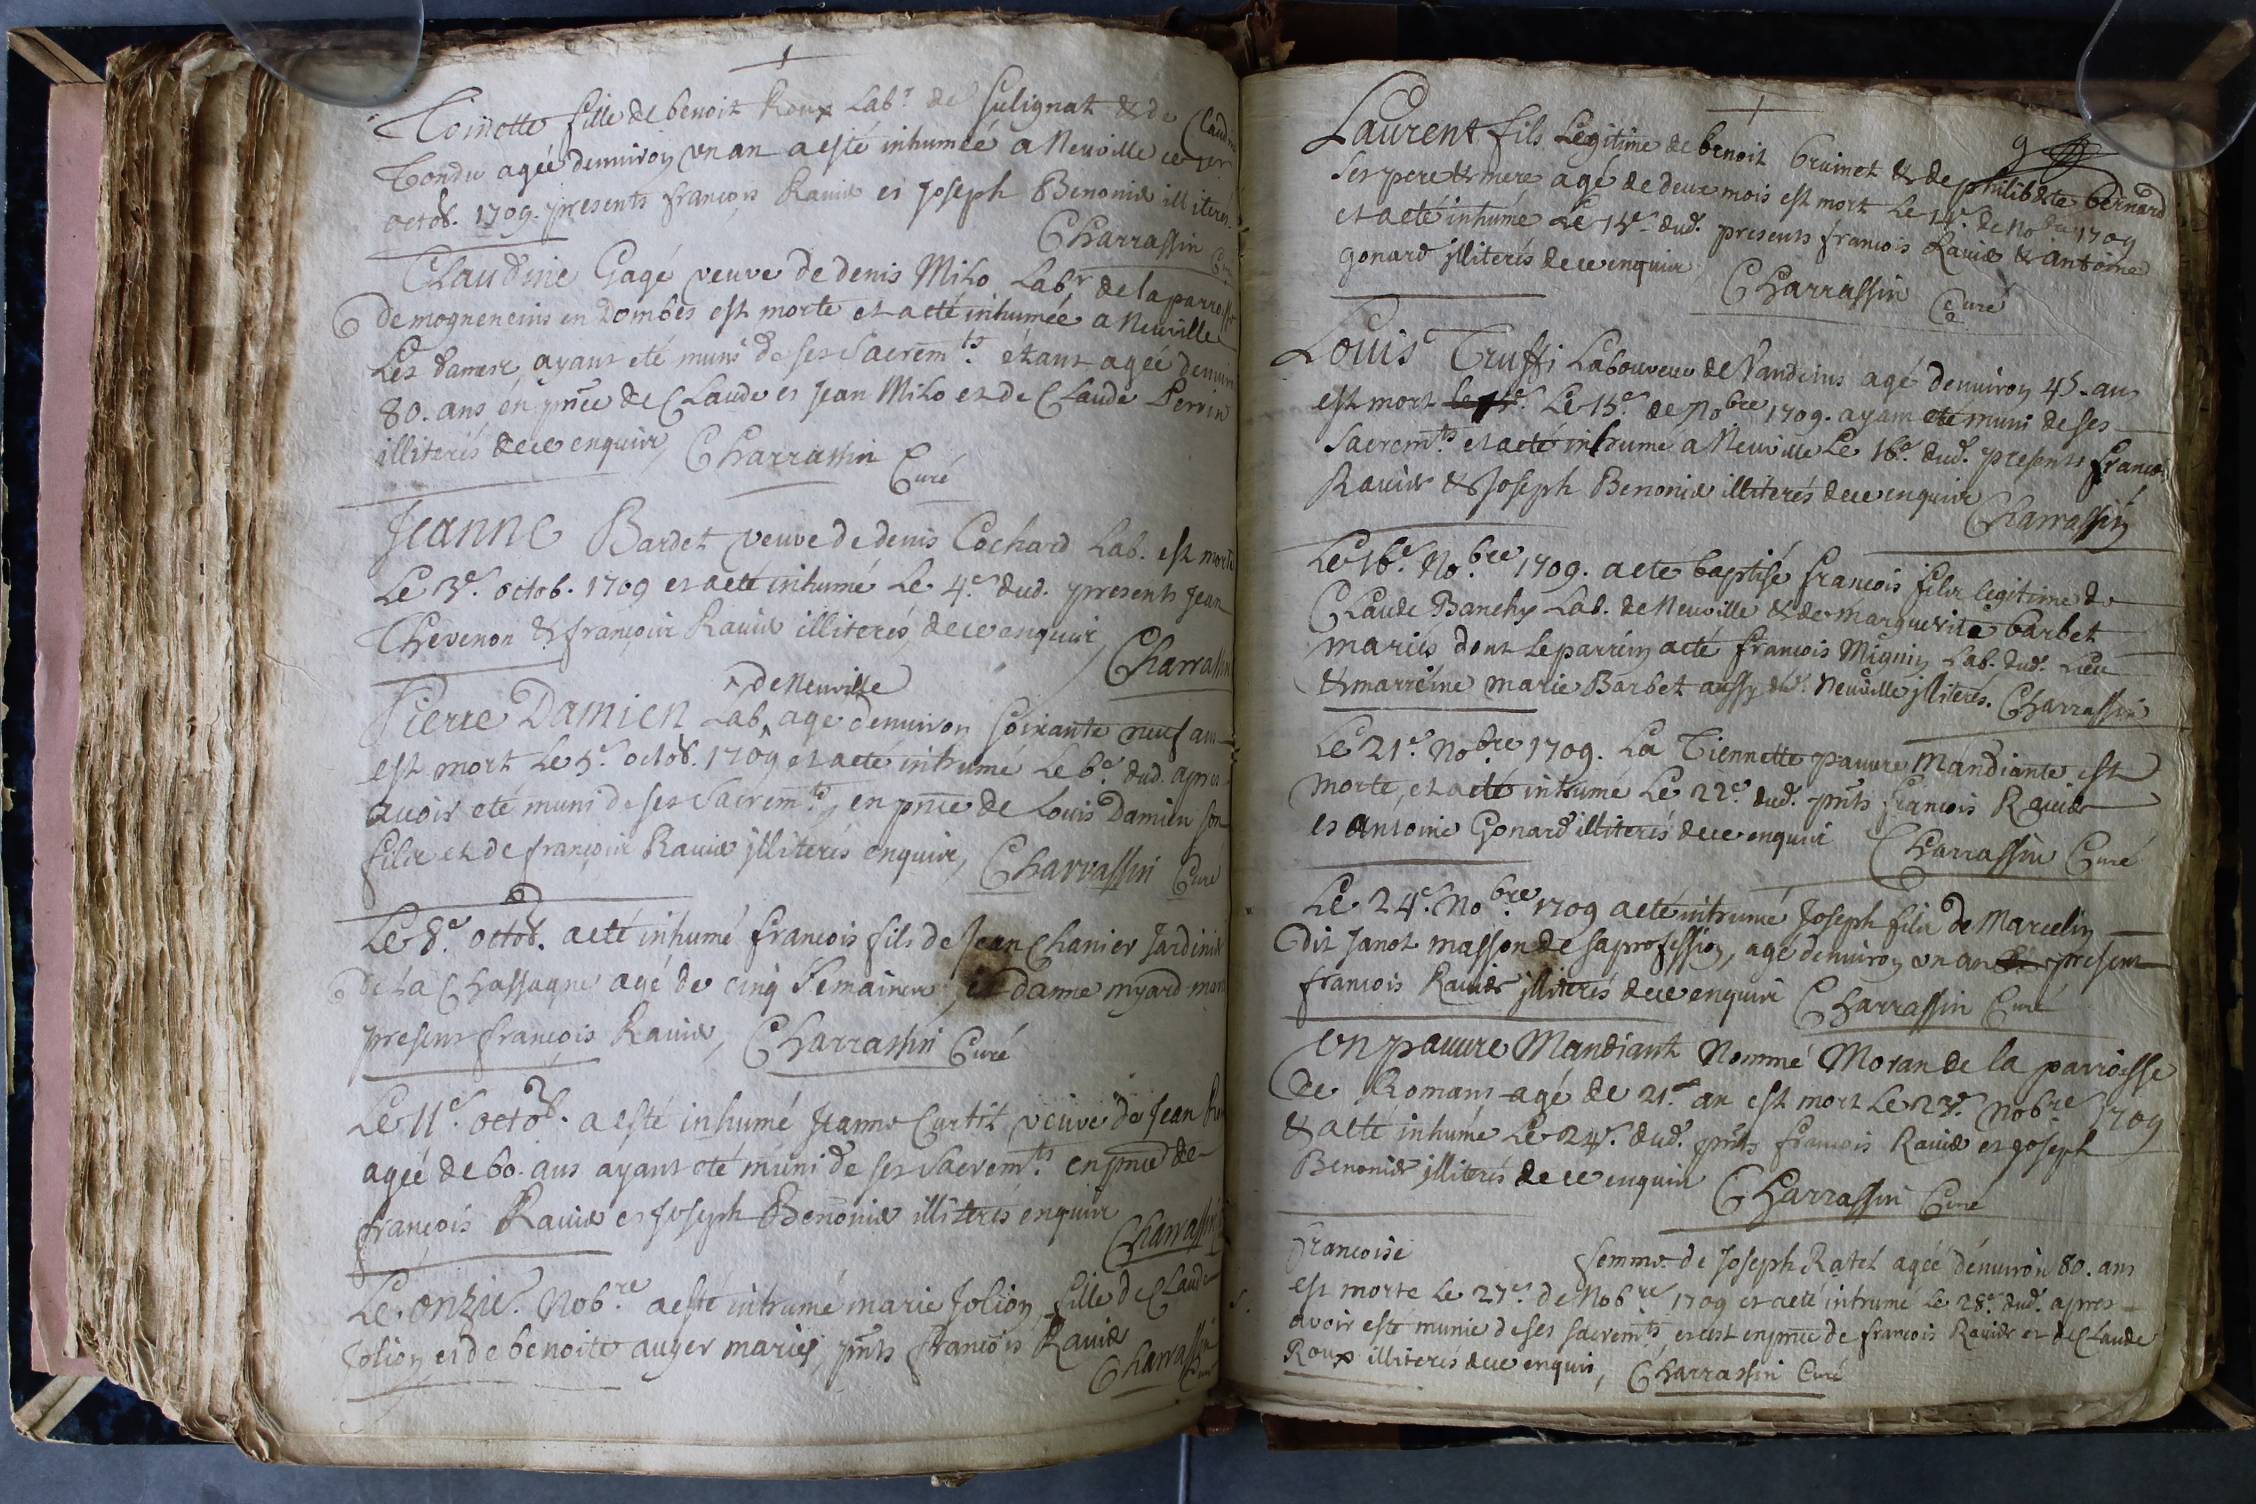 Toinette fille de benoit Roux Lab.r de Sulignat & de Claudine
Tondu agée denuiron vn an a esté inhumée a Neuville ce 1er
octob. 1709. presents françois Rauier et Joseph Benonier illiterés
Charrassin Curé
Claudine Gagé veuve de denis Milo Lab.r de la parroisse
de mogneneins en Dombes est morte et a eté inhumée a Neuville
Les dames, ayant eté muni de ses Sacrem.ts étant agée denuiron
80. ans en pñce de Claude et Jean Milo et de Claude Perrin
illiterés de ce enquis, Charrassin Curé
Jeanne Bardet veuve de denis Cochard Lab. est morte
Le 3.e octob. 1709 et a eté inhumé Le 4.e dud. presents Jean
Thevenon & françois Rauier illiterés de ce enquis, Charrassin
de Neuville
Pierre Damien Lab. agé denuiron soixante neuf ans
est mort Le 5.e octob. 1709 et a eté inhumé Le 6.e dud. apres
auoir eté muni de ses Sacrem.ts, en pñce de Louis Damien son
fils et de françois Rauier jlliterés enquis, Charrassin Curé
Le 8.e octob. a eté inhumé françois fils de Jean Chanier Jardinier
de La Chassagne agé de cinq Semaines, et danne myard
present françois Rauier, Charrassin Curé
Le 11.e octob. a esté inhumé Jeanne Curtit veuve de Jean
agée de 60. ans ayant eté muni de ses Sacrem.ts en pñce de
françois Rauier et Joseph Benonier illiterés enquis
Charrassin
Le onzie. Nob.re a esté inhumé marie Jolion fille de Claude
Jolion et de benoite auger mariés, pñts françois Rauier
Charrassin Curé
Laurent fils Legitime de benoit bruinet & de philib.te bernard
Ses pere & mere agé de deux mois est mort Le 14.e de No.bre 1709
et a eté inhumé Le 15.e dud. presents françois Rauier & antoine
gonard jlliterés de ce enquis Charrassin Curé
Louis Truffi Laboureur de Vandeins agé denuiron 45. ans
est mort Le 15.e de No.bre 1709. ayant eté muni de ses
Sacrem.ts et a eté inhumé a Neuville Le 16.e dud. presents françois
Rauier & Joseph Benonier illiterés de ce enquis
Charrassin
Le 16.e No.bre 1709. a eté baptisé françois fils legitime de
Claude Banchy Lab. de Neuville & de marguerite barbet
mariés dont Le parrein a eté françois Mignin Lab. dud. Lieu
& marreine marie Barbet aussy de Neuville jlliterés. Charrassin
Le 21.e No.bre 1709. La Tiennette pauure Mandiante est
morte, et a eté inhumé Le 22.e dud. pñts françois Rauier
et antoine Gonard illiterés de ce enquis Charrassin Curé
Le 24.e No.bre 1709 a eté inhumé Joseph fils de Marcelin
dit Janot masson de sa profession, agé denuiron vn an present
françois Rauier jlliterés de ce enquis Charrassin Curé
Vn pauure Mandiant Nommé Moran de la parroisse
de Romans agé de 21. an est mort Le 23.e Nob.re 1709
& a eté inhumé Le 24.e dud. pñts françois Rauier et Joseph
Benonier jlliterés de ce enquis Charrassin Curé
Francoise femme de Joseph Ratet agée denuiron 80. ans
est morte Le 27.e de Nob.re 1709 et a eté inhumé Le 28.e dud. apres
avoir esté munie de ses sacrem.ts et cest en pñce de françois Rauier et de Claude
Roux illiterés de ce enquis, Charrassin Curé